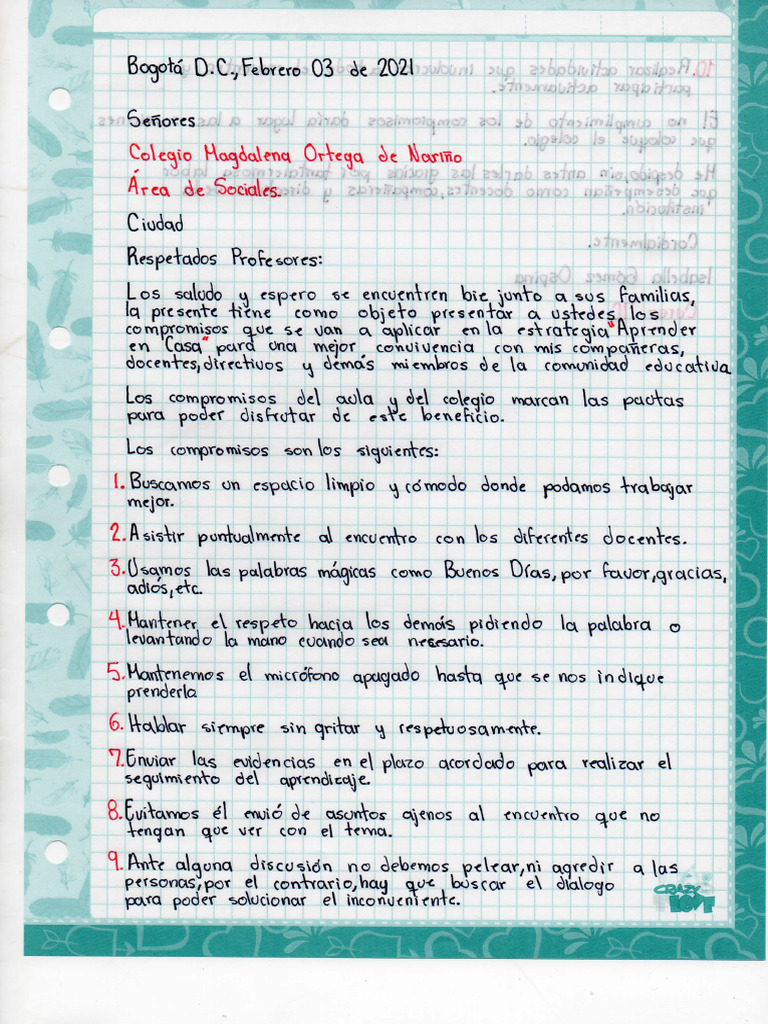 Bogotá D.C., Febrero 03 de 2021
Señores
Colegio Magdalena Ortega de Nariño
Área de Sociales.
Ciudad
Respetados Profesores:
Los saludo y espero se encuentren bie junto a sus familias,
la presente tiene como objeto presentar a ustedes los
compromisos que se van a aplicar en la estrategia "Aprender
en Casa" para una mejor convivencia con mis compañeras,
docentes, directivos y demás miembros de la comunidad educativa
Los compromisos del aula y del colegio marcan las pautas
para poder disfrutar de este beneficio.
Los compromisos son los siguientes:
1. Buscamos un espacio limpio y cómodo donde podamos trabajar
mejor.
2. Asistir puntualmente al encuentro con los diferentes docentes.
3. Usamos las palabras mágicas como Buenos Días, por favor, gracias,
adiós, etc.
4. Mantener el respeto hacia los demás pidiendo la palabra o
levantando la mano cuando sea necesario.
5. Mantenemos el micrófono apagado hasta que se nos indique
prenderla
6. Hablar siempre sin gritar y respetuosamente.
7. Enviar las evidencias en el plazo acordado para realizar el
seguimiento del aprendizaje.
8. Evitamos él envió de asuntos ajenos al encuentro que no
tengan que ver con el tema.
9. Ante alguna discusión no debemos pelear, ni agredir a las
personas, por el contrario, hay que buscar el dialogo
para poder solucionar el inconveniente.
CRAZY
LOVE